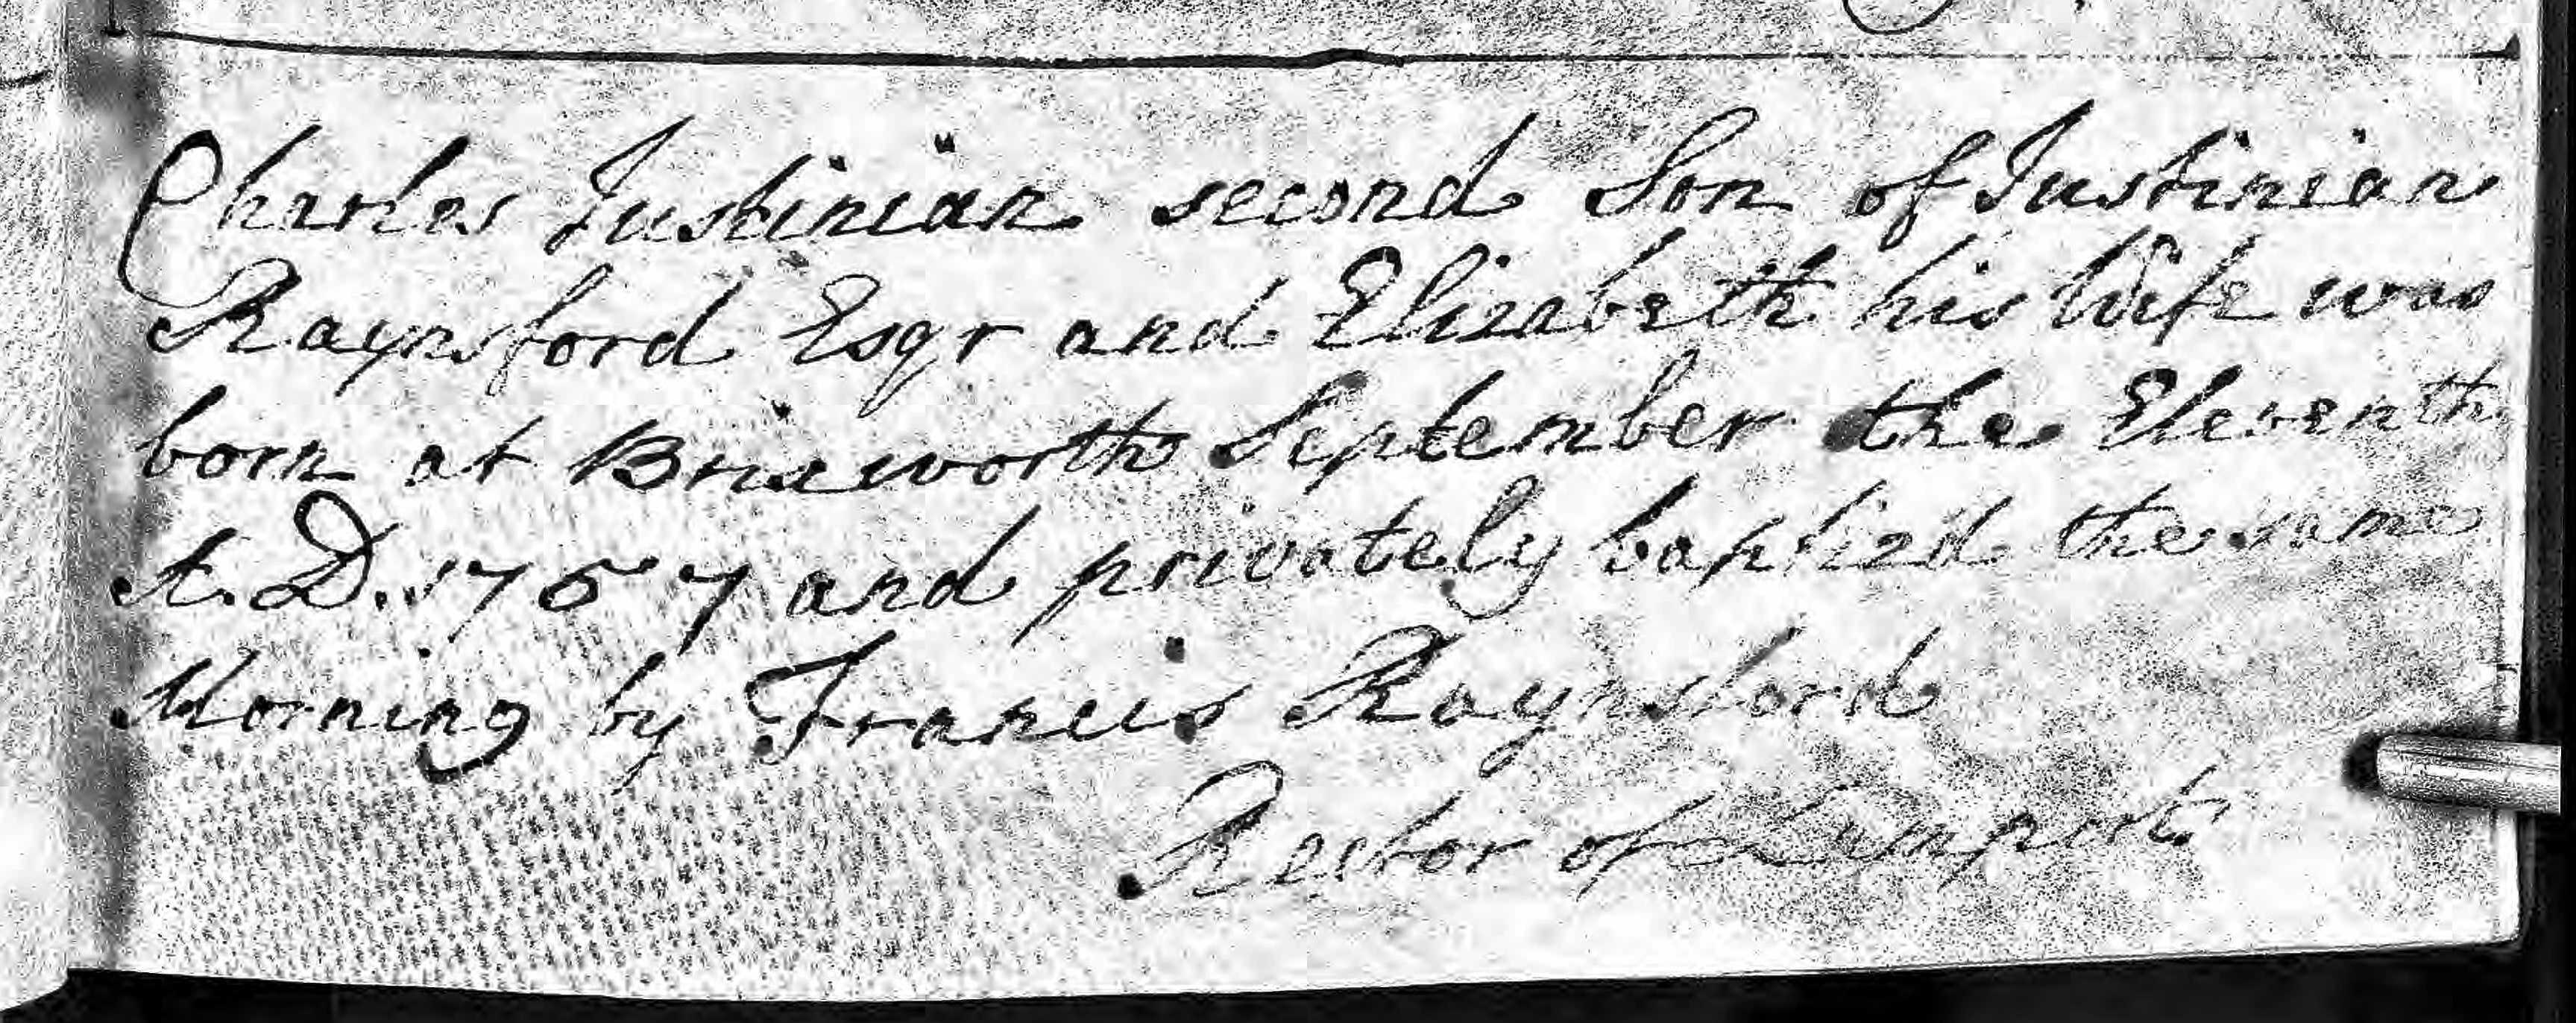 Charles Justinian second Son of Justinian
Raynsford Esqr and Elizabeth his Wife was
born at Brixworth September the Eleventh
A.D. 1757 and privately baptized the same
Morning by Francis Raynsford
Rector of Lamport